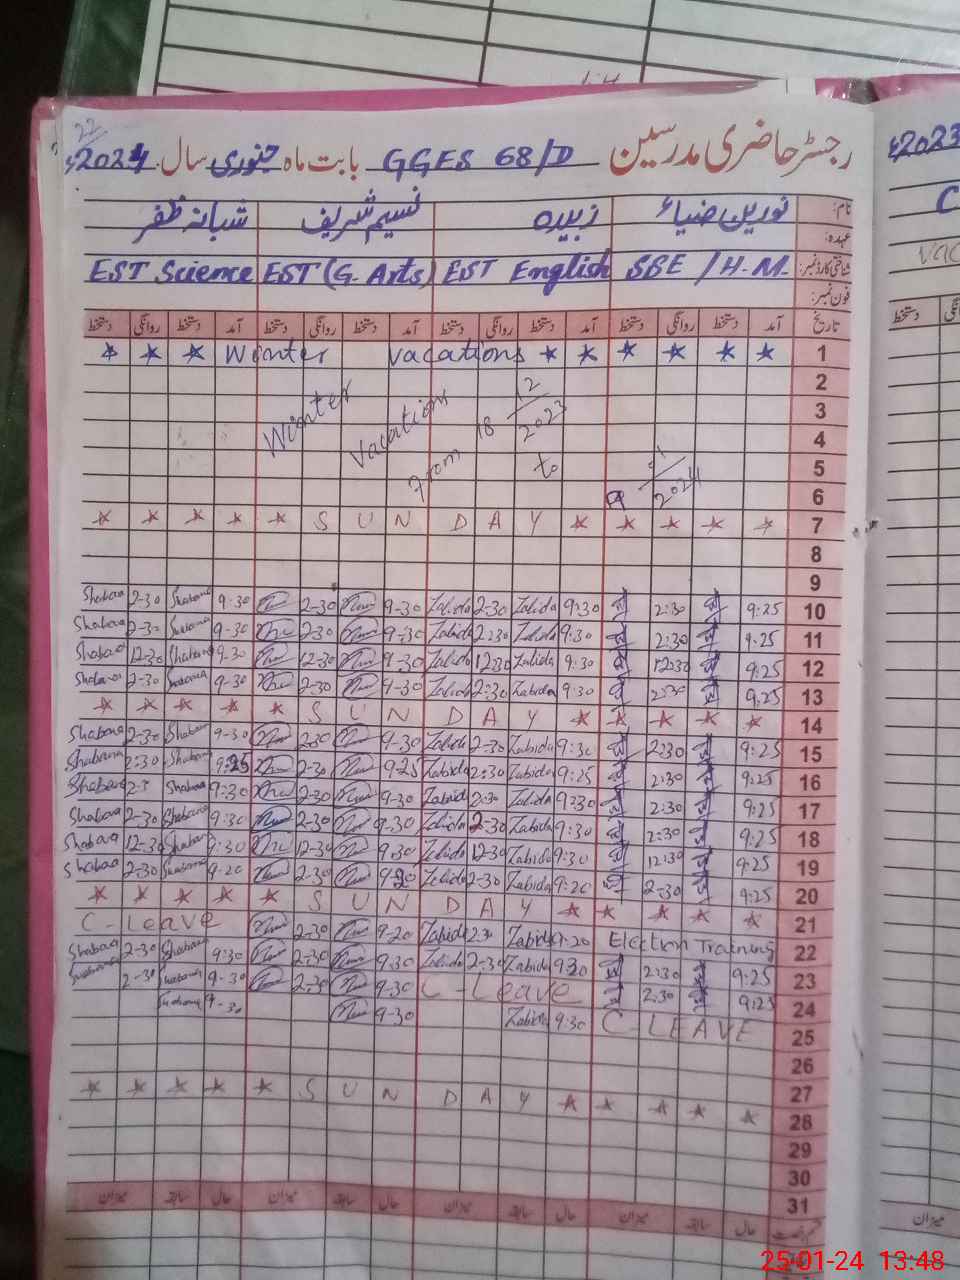 22
رجسٹر حاضری مدرسین GGES 68/D بابت ماہ جنوری سال 2024ء
2023ء
نام: نورین ضیاء زبیدہ نسیم شریف شبانہ ظفر
عہدہ:
شناختی کارڈ نمبر: SSE / H.M. EST English EST (G. Arts) EST Science
فون نمبر:
تاریخ آمد دستخط روانگی دستخط آمد دستخط روانگی دستخط آمد دستخط روانگی دستخط آمد دستخط روانگی دستخط
دستخط
★ ★ ★ Winter Vacations ★ ★ ★ ★ ★ ★ 1
2
3
4
5
6
Winter Vacations From 18 12/2023 to 9 1/2024
★ ★ ★ ★ ★ S U N D A Y ★ ★ ★ ★ ★ 7
8
9
Shabana 2-30 Shabana 9-30 2-30 9-30 Zabida 2-30 Zabida 9:30 2:30 9:25 10
Shabana 2-30 Shabana 9-30 2-30 9-30 Zabida 2:30 Zabida 9:30 2:30 9:25 11
Shabana 12-30 Shabana 9-30 12-30 9-30 Zabida 12:30 Zabida 9:30 12:30 9:25 12
Shabana 2-30 Shabana 9-30 2-30 9-30 Zabida 2:30 Zabida 9:30 2:30 9:25 13
★ ★ ★ ★ ★ S U N D A Y ★ ★ ★ ★ ★ 14
Shabana 2-30 Shabana 9-30 2-30 9-30 Zabida 2-30 Zabida 9:30 2:30 9:25 15
Shabana 2:30 Shabana 9:25 2-30 9-25 Zabida 2:30 Zabida 9:25 2:30 9:25 16
Shabana Shabana 9:30 2-30 9-30 Zabida 2:30 Zabida 9:30 2:30 9:25 17
Shabana 2-30 Shabana 9:30 2-30 9-30 Zabida 2-30 Zabida 9:30 2:30 9:25 18
Shabana 12-30 Shabana 9:30 12-30 9:30 Zabida 12-30 Zabida 9:30 12:30 9:25 19
Shabana 2-30 Shabana 9-20 2-30 9-20 Zabida 2-30 Zabida 9:20 2-30 9:25 20
★ ★ ★ ★ ★ S U N D A Y ★ ★ ★ ★ ★ 21
C-Leave 2-30 9-20 Zabida 2:30 Zabida 9:20 Election Training 22
Shabana 2-30 Shabana 9:30 2-30 9:30 Zabida 2-30 Zabida 9:30 2:30 9:25 23
Shabana 2-30 Shabana 9-30 2-30 9:30 C-Leave 2:30 9:25 24
Shabana 9-30 9-30 Zabida 9:30 C-LEAVE 25
26
27
★ ★ ★ ★ ★ S U N D A Y ★ ★ ★ ★ 28
29
30
31
حال سابقہ میزان حال سابقہ میزان حال سابقہ میزان حال سابقہ میزان
میزان
25-01-24 13:48